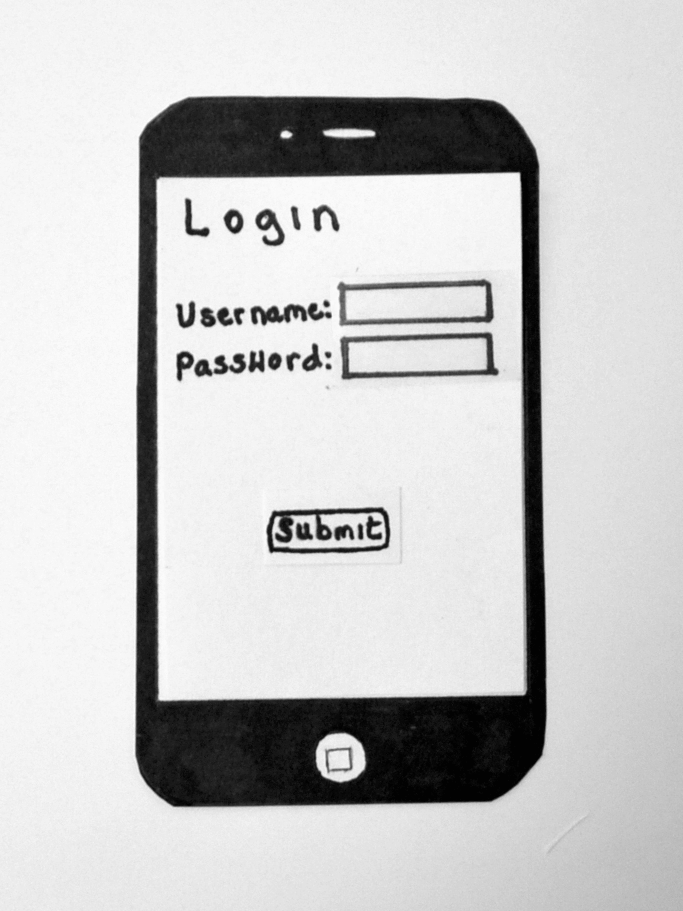 Login
Username:
Password:
Submit